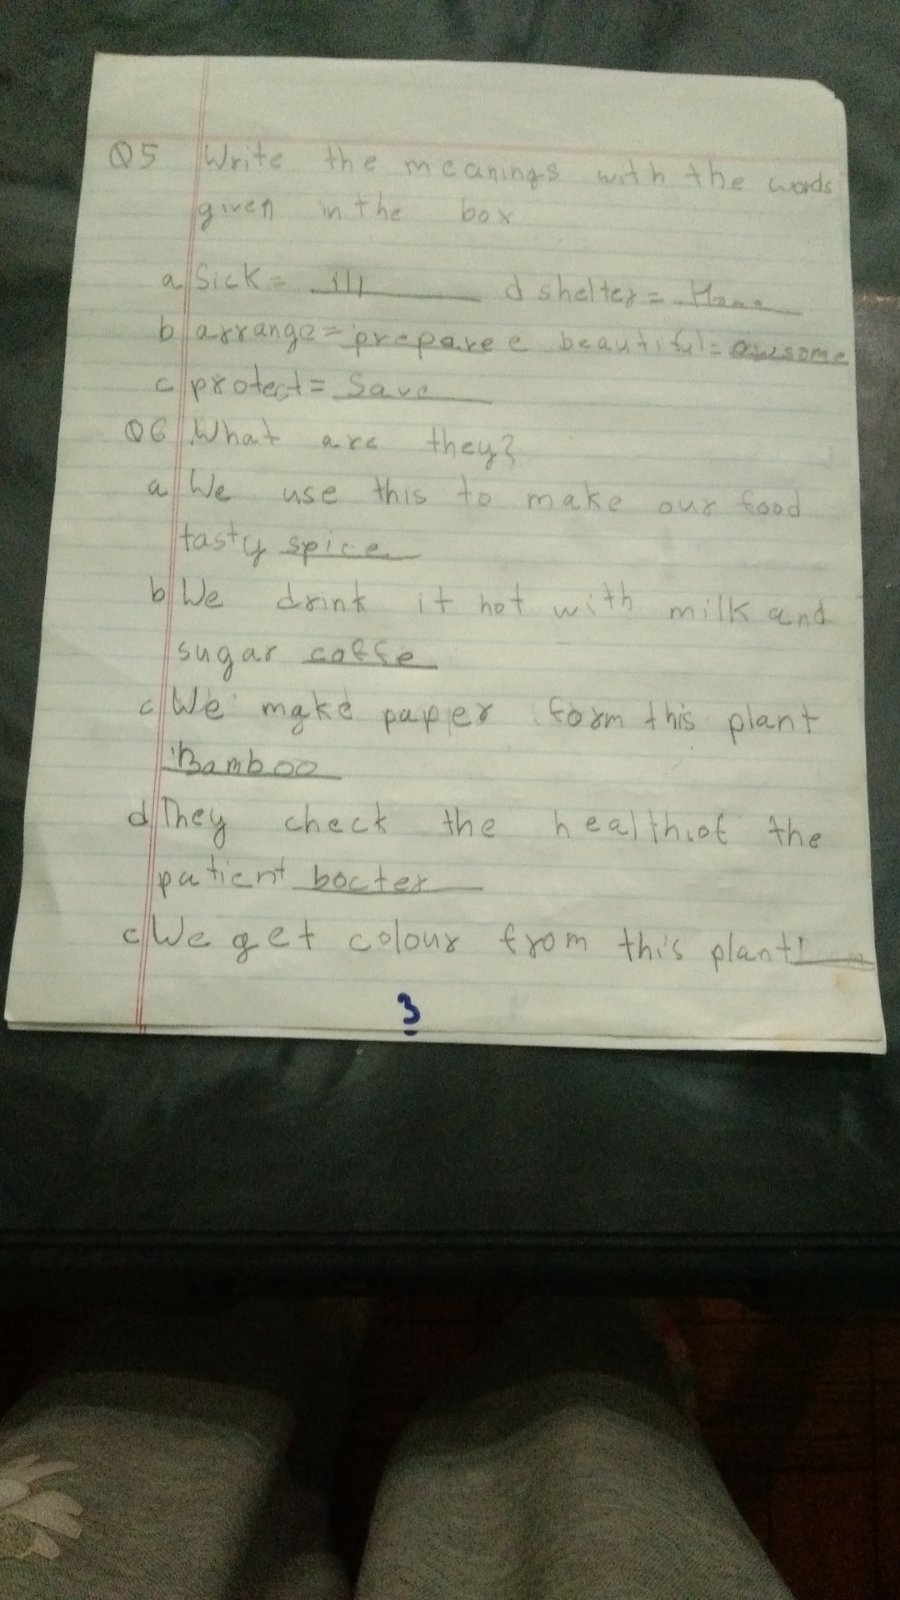 Q5 Write the meanings with the words
given in the box
a Sick = ill d shelter = Home
b arrange = prepare e beautiful = awsome
c protect = Save
Q6 What are they?
a We use this to make our food
tasty spice
b We drink it hot with milk and
sugar coffe
c We make paper form this plant
Bamboo
d They check the health of the
patient bocter
e We get colour from this plant
3